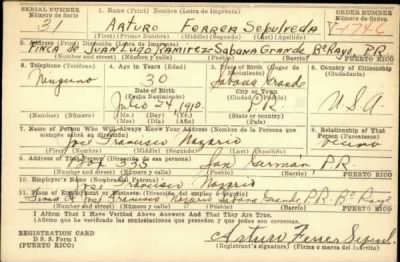 SERIAL NUMBER
Número de Serie
1. Name (Print) Nombre (Letra de Imprenta)
ORDER NUMBER
Número de Orden
31
Arturo Ferrer Sepulveda
1746
(First) (Primer Nombre) (Middle) (Segundo Nombre) (Last) (Apellido)
2. Address (Print) Dirección (Letra de Imprenta)
Finca de Juan Lugo Ramirez Sabana Grande Bo Rayo, P.R.
(Number) (Número) (Street) (Calle) (Town) (Pueblo) (Barrio) PUERTO RICO
3. Telephone
Teléfono
4. Age in Years (Edad)
5. Place of Birth
Lugar de Nacimiento
6. Country of Citizenship
(Ciudadanía)
Ninguno
30
Sabana Grande
Date of Birth
(Fecha Nacimiento)
City or Town
Julio 24, 1910.
P.R.
U.S.A.
(Mo.) (Day) (Yr.)
(Mes) (Día) (Año)
State or country
7. Name of Person Who Will Always Know Your Address (Nombre de la Persona que siempre sabrá su dirección)
8. Relationship of That Person (Parentesco)
Jose Francisco Nazario
Vecino
(First) (Nombre) (Middle) (Segundo) (Last) (Apellido)
9. Address of That Person (Dirección de esa persona)
Box 353 San German, P.R.
(Number) (Número) (Street) (Calle) (Town) (Pueblo) (Barrio) PUERTO RICO
10. Employer's Name (Nombre del Patrono)
Jose Francisco Nazario
11. Place of Employment or Business (Dirección del empleo o negocio)
Finca de Jose Francisco Nazario Sabana Grande P.R. Bo Rayo
(Number) (Número) (Street) (Calle) (Town) (Pueblo) (Barrio) PUERTO RICO
I Affirm That I Have Verified Above Answers And That They Are True.
Afirmo que he verificado las contestaciones que preceden y que son correctas.
REGISTRATION CARD
D. S. S. Form 1
(PUERTO RICO)
Arturo Ferrer Sepul.
Registrant's signature (Firma o marca del inscrito)